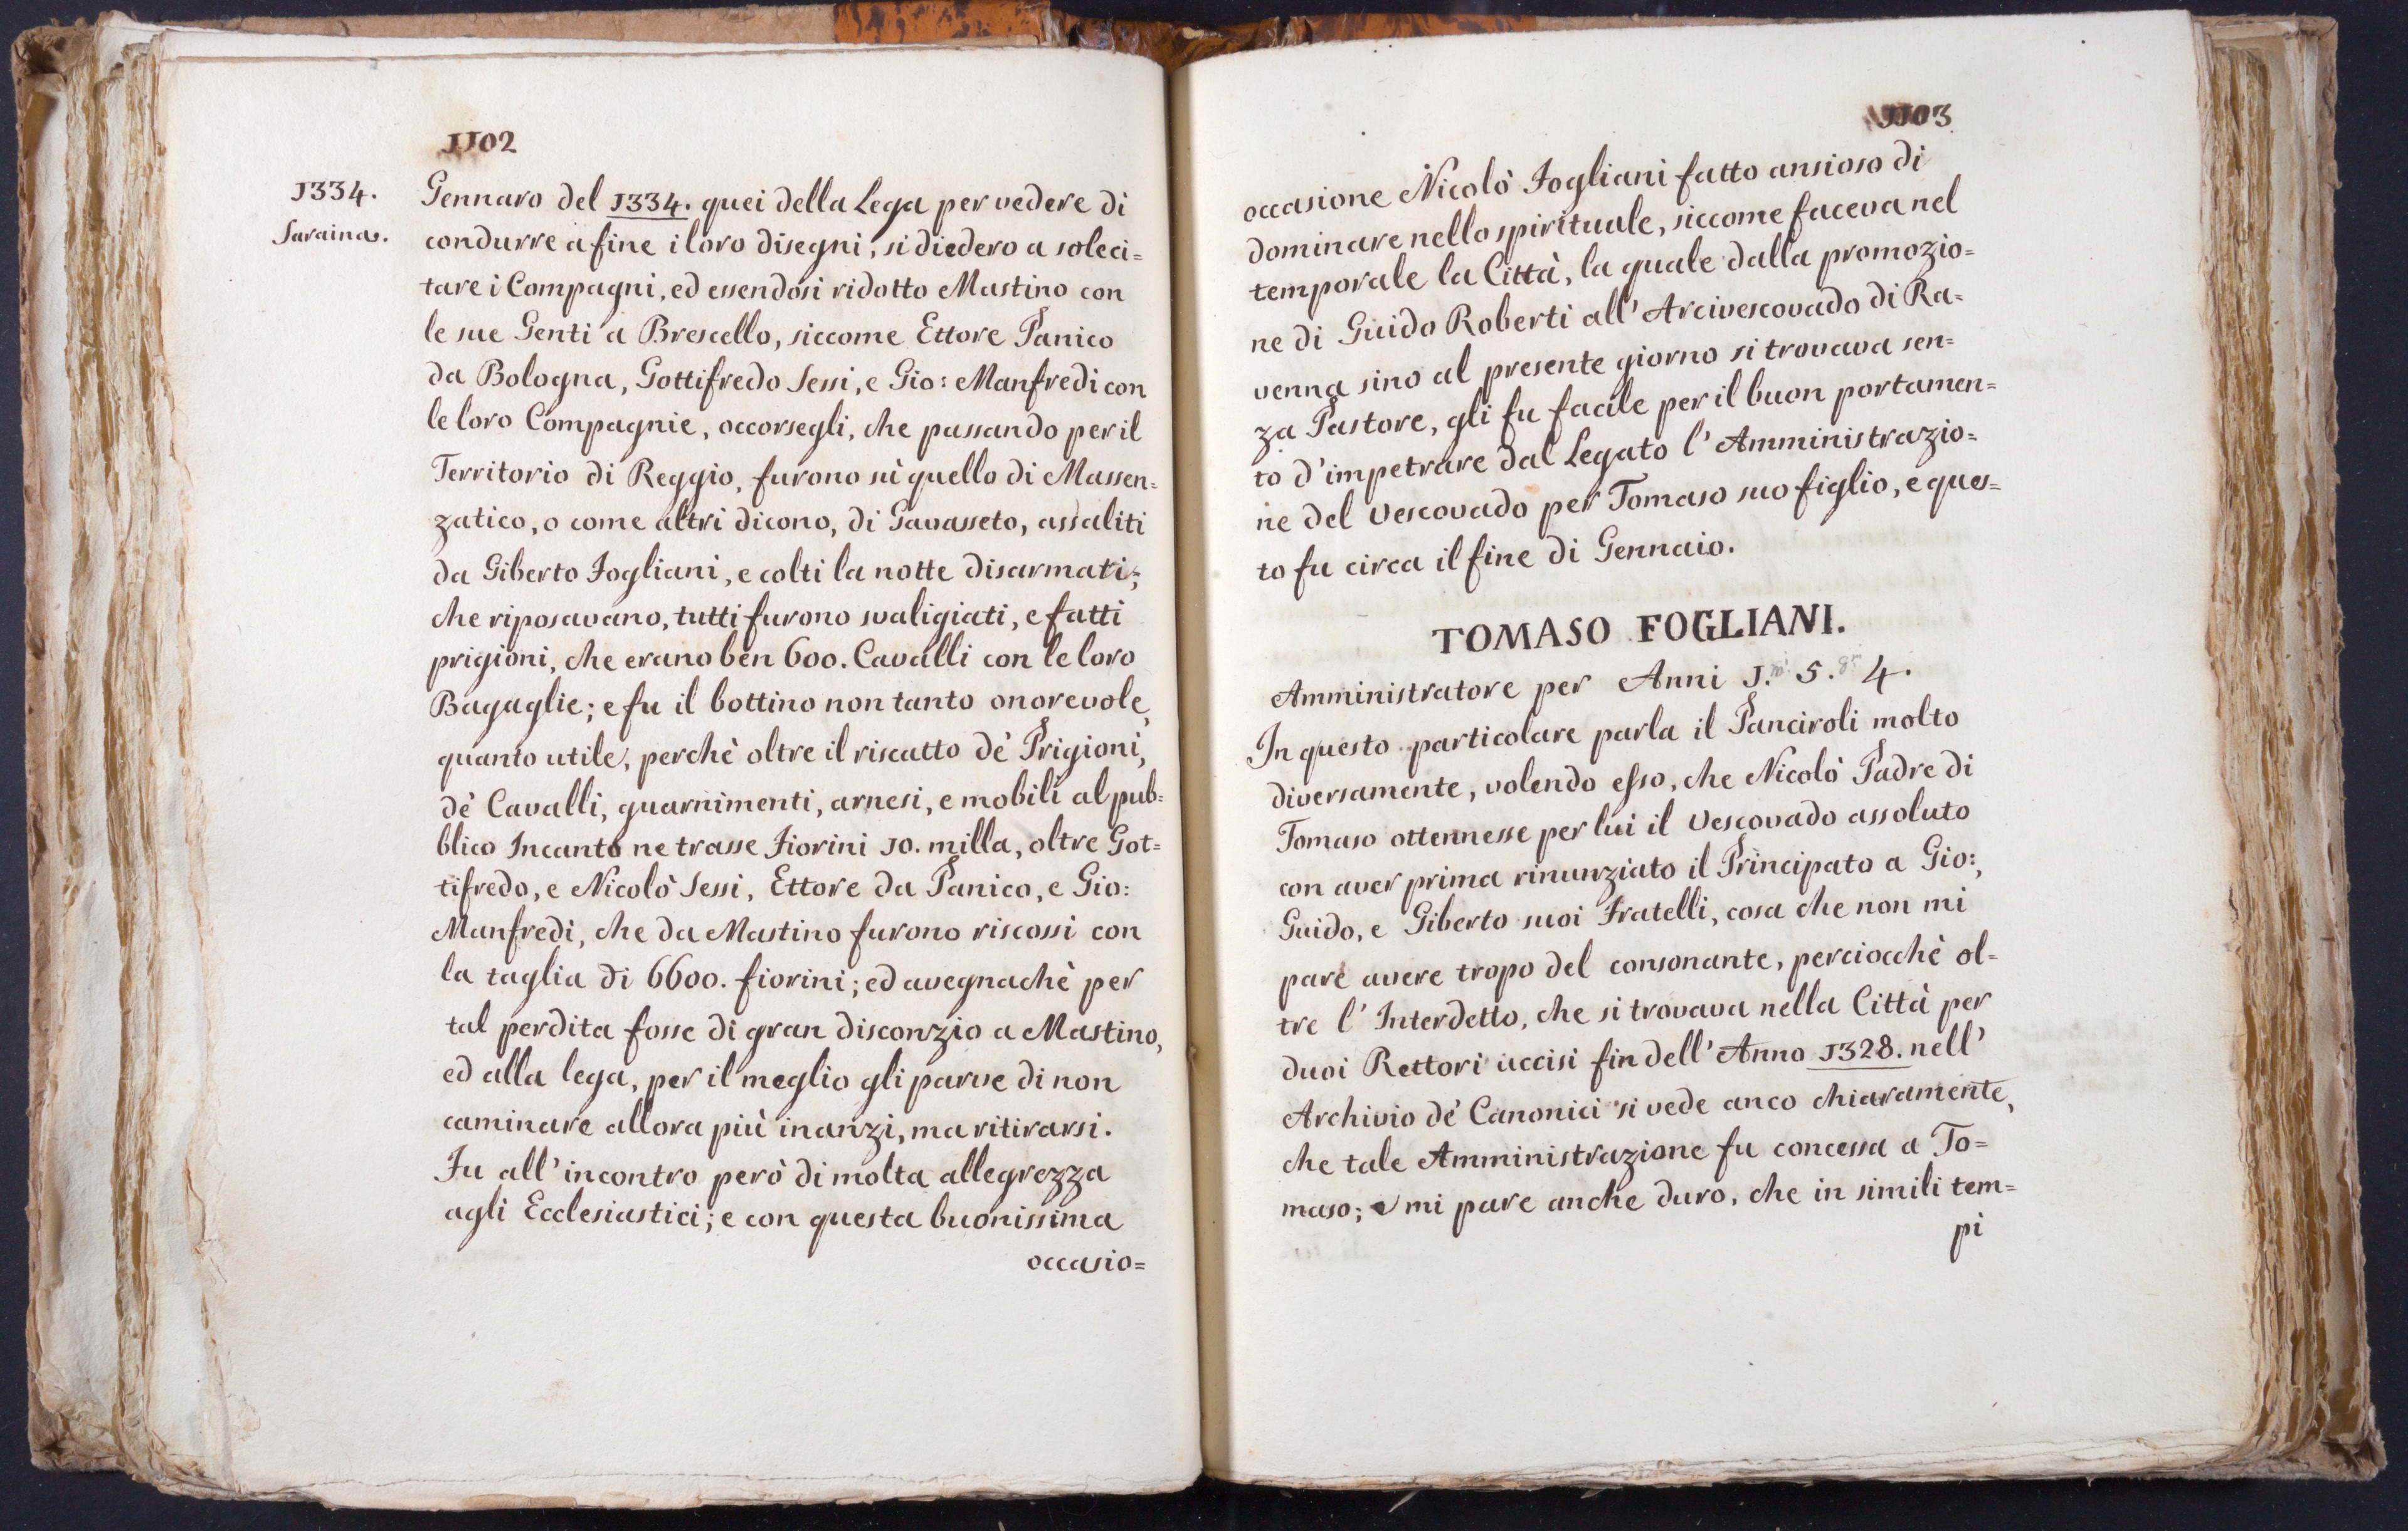 1102
1334.
Saraina.
Gennaro del 1334. quei della Lega per vedere di
condurre a fine i loro disegni, si diedero a soleci=
tare i Compagni, ed essendosi ridotto Mastino con
le sue Genti a Brescello, siccome Ettore Panico
da Bologna, Gottifredo Sessi, e Gio: Manfredi con
le loro Compagnie, occorsegli, che passando per il
Territorio di Reggio, furono sù quello di Massen=
zatico, o come altri dicono, di Gavasseto, assaliti
da Giberto Fogliani, e colti la notte disarmati;
che riposavano, tutti furono svaligiati, e fatti
prigioni, che erano ben 600. Cavalli con le loro
Bagaglie; e fu il bottino non tanto onorevole,
quanto utile, perchè oltre il riscatto dè Prigioni,
dè Cavalli, guarnimenti, arnesi, e mobili al pub=
blico Incanto ne trasse Fiorini 10. milla, oltre Got=
tifredo, e Nicolò Sessi, Ettore da Panico, e Gio:
Manfredi, che da Mastino furono riscossi con
la taglia di 6600. fiorini; ed avegnachè per
tal perdita fosse di gran disconzio a Mastino,
ed alla lega, per il meglio gli parve di non
caminare allora più inanzi, ma ritirarsi.
Fu all' incontro però di molta allegrezza
agli Ecclesiastici; e con questa buonissima
occasio=
1103
occasione Nicolò Fogliani fatto ansioso di
dominare nello spirituale, siccome faceva nel
temporale la Città, la quale dalla promozio=
ne di Guido Roberti all' Arcivescovado di Ra=
venna sino al presente giorno si trovava sen=
za Pastore, gli fu facile per il buon portamen=
to d' impetrare dal Legato l' Amministrazio=
ne del Vescovado per Tomaso suo figlio, e ques=
to fu circa il fine di Gennaio.
TOMASO FOGLIANI.
Amministratore per Anni 1. 5. 4.
In questo particolare parla il Panciroli molto
diversamente, volendo esso, che Nicolò Padre di
Tomaso ottennesse per lui il Vescovado assoluto
con aver prima rinunziato il Principato a Gio:,
Guido, e Giberto suoi Fratelli, cosa che non mi
pare avere tropo del consonante, perciocchè ol=
tre l' Interdetto, che si trovava nella Città per
duoi Rettori uccisi fin dell' Anno 1328. nell'
Archivio dè Canonici si vede anco chiaramente,
che tale Amministrazione fu concessa a To=
maso; e mi pare anche duro, che in simili tem=
pi